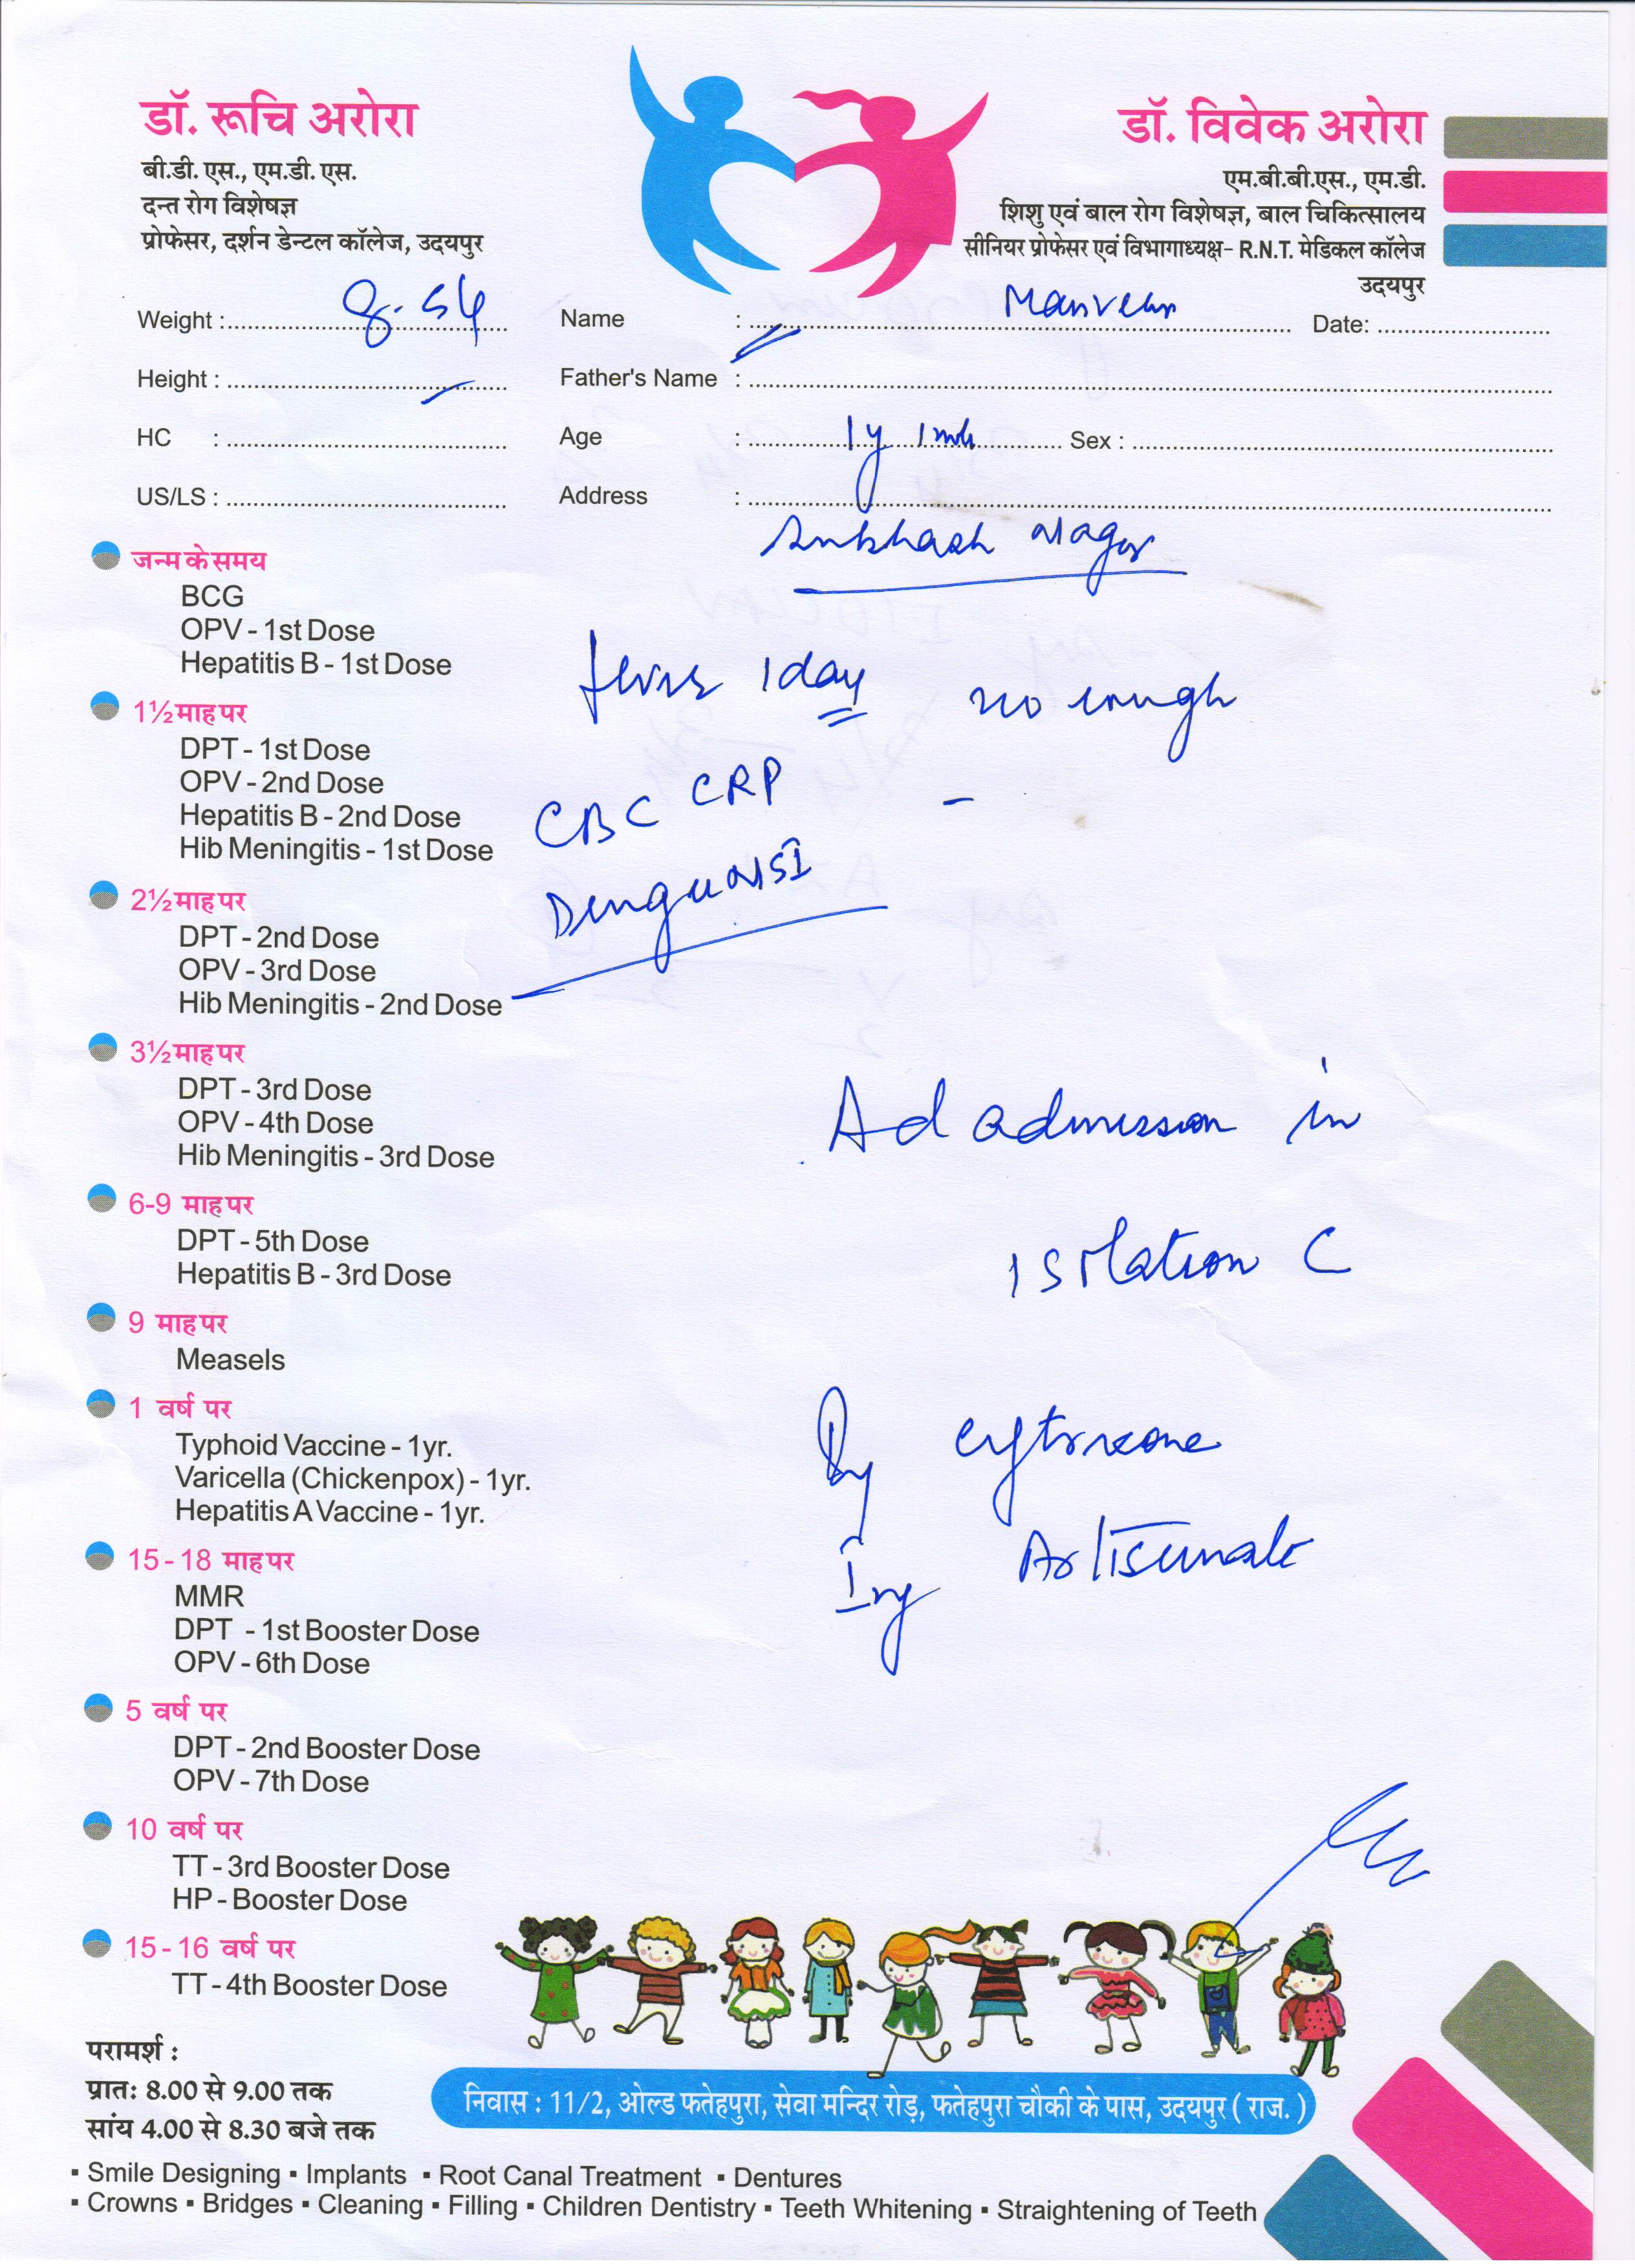 डॉ. रूचि अरोरा
बी.डी. एस., एम.डी. एस.
दन्त रोग विशेषज्ञ
प्रोफेसर, दर्शन डेन्टल कॉलेज, उदयपुर
डॉ. विवेक अरोरा
एम.बी.बी.एस., एम.डी.
शिशु एवं बाल रोग विशेषज्ञ, बाल चिकित्सालय
सीनियर प्रोफेसर एवं विभागाध्यक्ष- R.N.T. मेडिकल कॉलेज
उदयपुर
Weight : 8.54 Name : Date:
Height : Father's Name :
HC : Age : 1y 1mth Sex :
US/LS : Address :
Subhash Nagar
fever 1 day no cough
CBC CRP -
Dengue NS1
Ad admission in
isolation C
Inj Artisunate
जन्म के समय
BCG
OPV - 1st Dose
Hepatitis B - 1st Dose
1½ माह पर
DPT - 1st Dose
OPV - 2nd Dose
Hepatitis B - 2nd Dose
Hib Meningitis - 1st Dose
2½ माह पर
DPT - 2nd Dose
OPV - 3rd Dose
Hib Meningitis - 2nd Dose
3½ माह पर
DPT - 3rd Dose
OPV - 4th Dose
Hib Meningitis - 3rd Dose
6-9 माह पर
DPT - 5th Dose
Hepatitis B - 3rd Dose
9 माह पर
Measels
1 वर्ष पर
Typhoid Vaccine - 1yr.
Varicella (Chickenpox) - 1yr.
Hepatitis A Vaccine - 1yr.
15 - 18 माह पर
MMR
DPT - 1st Booster Dose
OPV - 6th Dose
5 वर्ष पर
DPT - 2nd Booster Dose
OPV - 7th Dose
10 वर्ष पर
TT - 3rd Booster Dose
HP - Booster Dose
15 - 16 वर्ष पर
TT - 4th Booster Dose
परामर्श :
प्रातः 8.00 से 9.00 तक
सांय 4.00 से 8.30 बजे तक
निवास : 11/2, ओल्ड फतेहपुरा, सेवा मन्दिर रोड़, फतेहपुरा चौकी के पास, उदयपुर ( राज. )
▪ Smile Designing ▪ Implants ▪ Root Canal Treatment ▪ Dentures
▪ Crowns ▪ Bridges ▪ Cleaning ▪ Filling ▪ Children Dentistry ▪ Teeth Whitening ▪ Straightening of Teeth